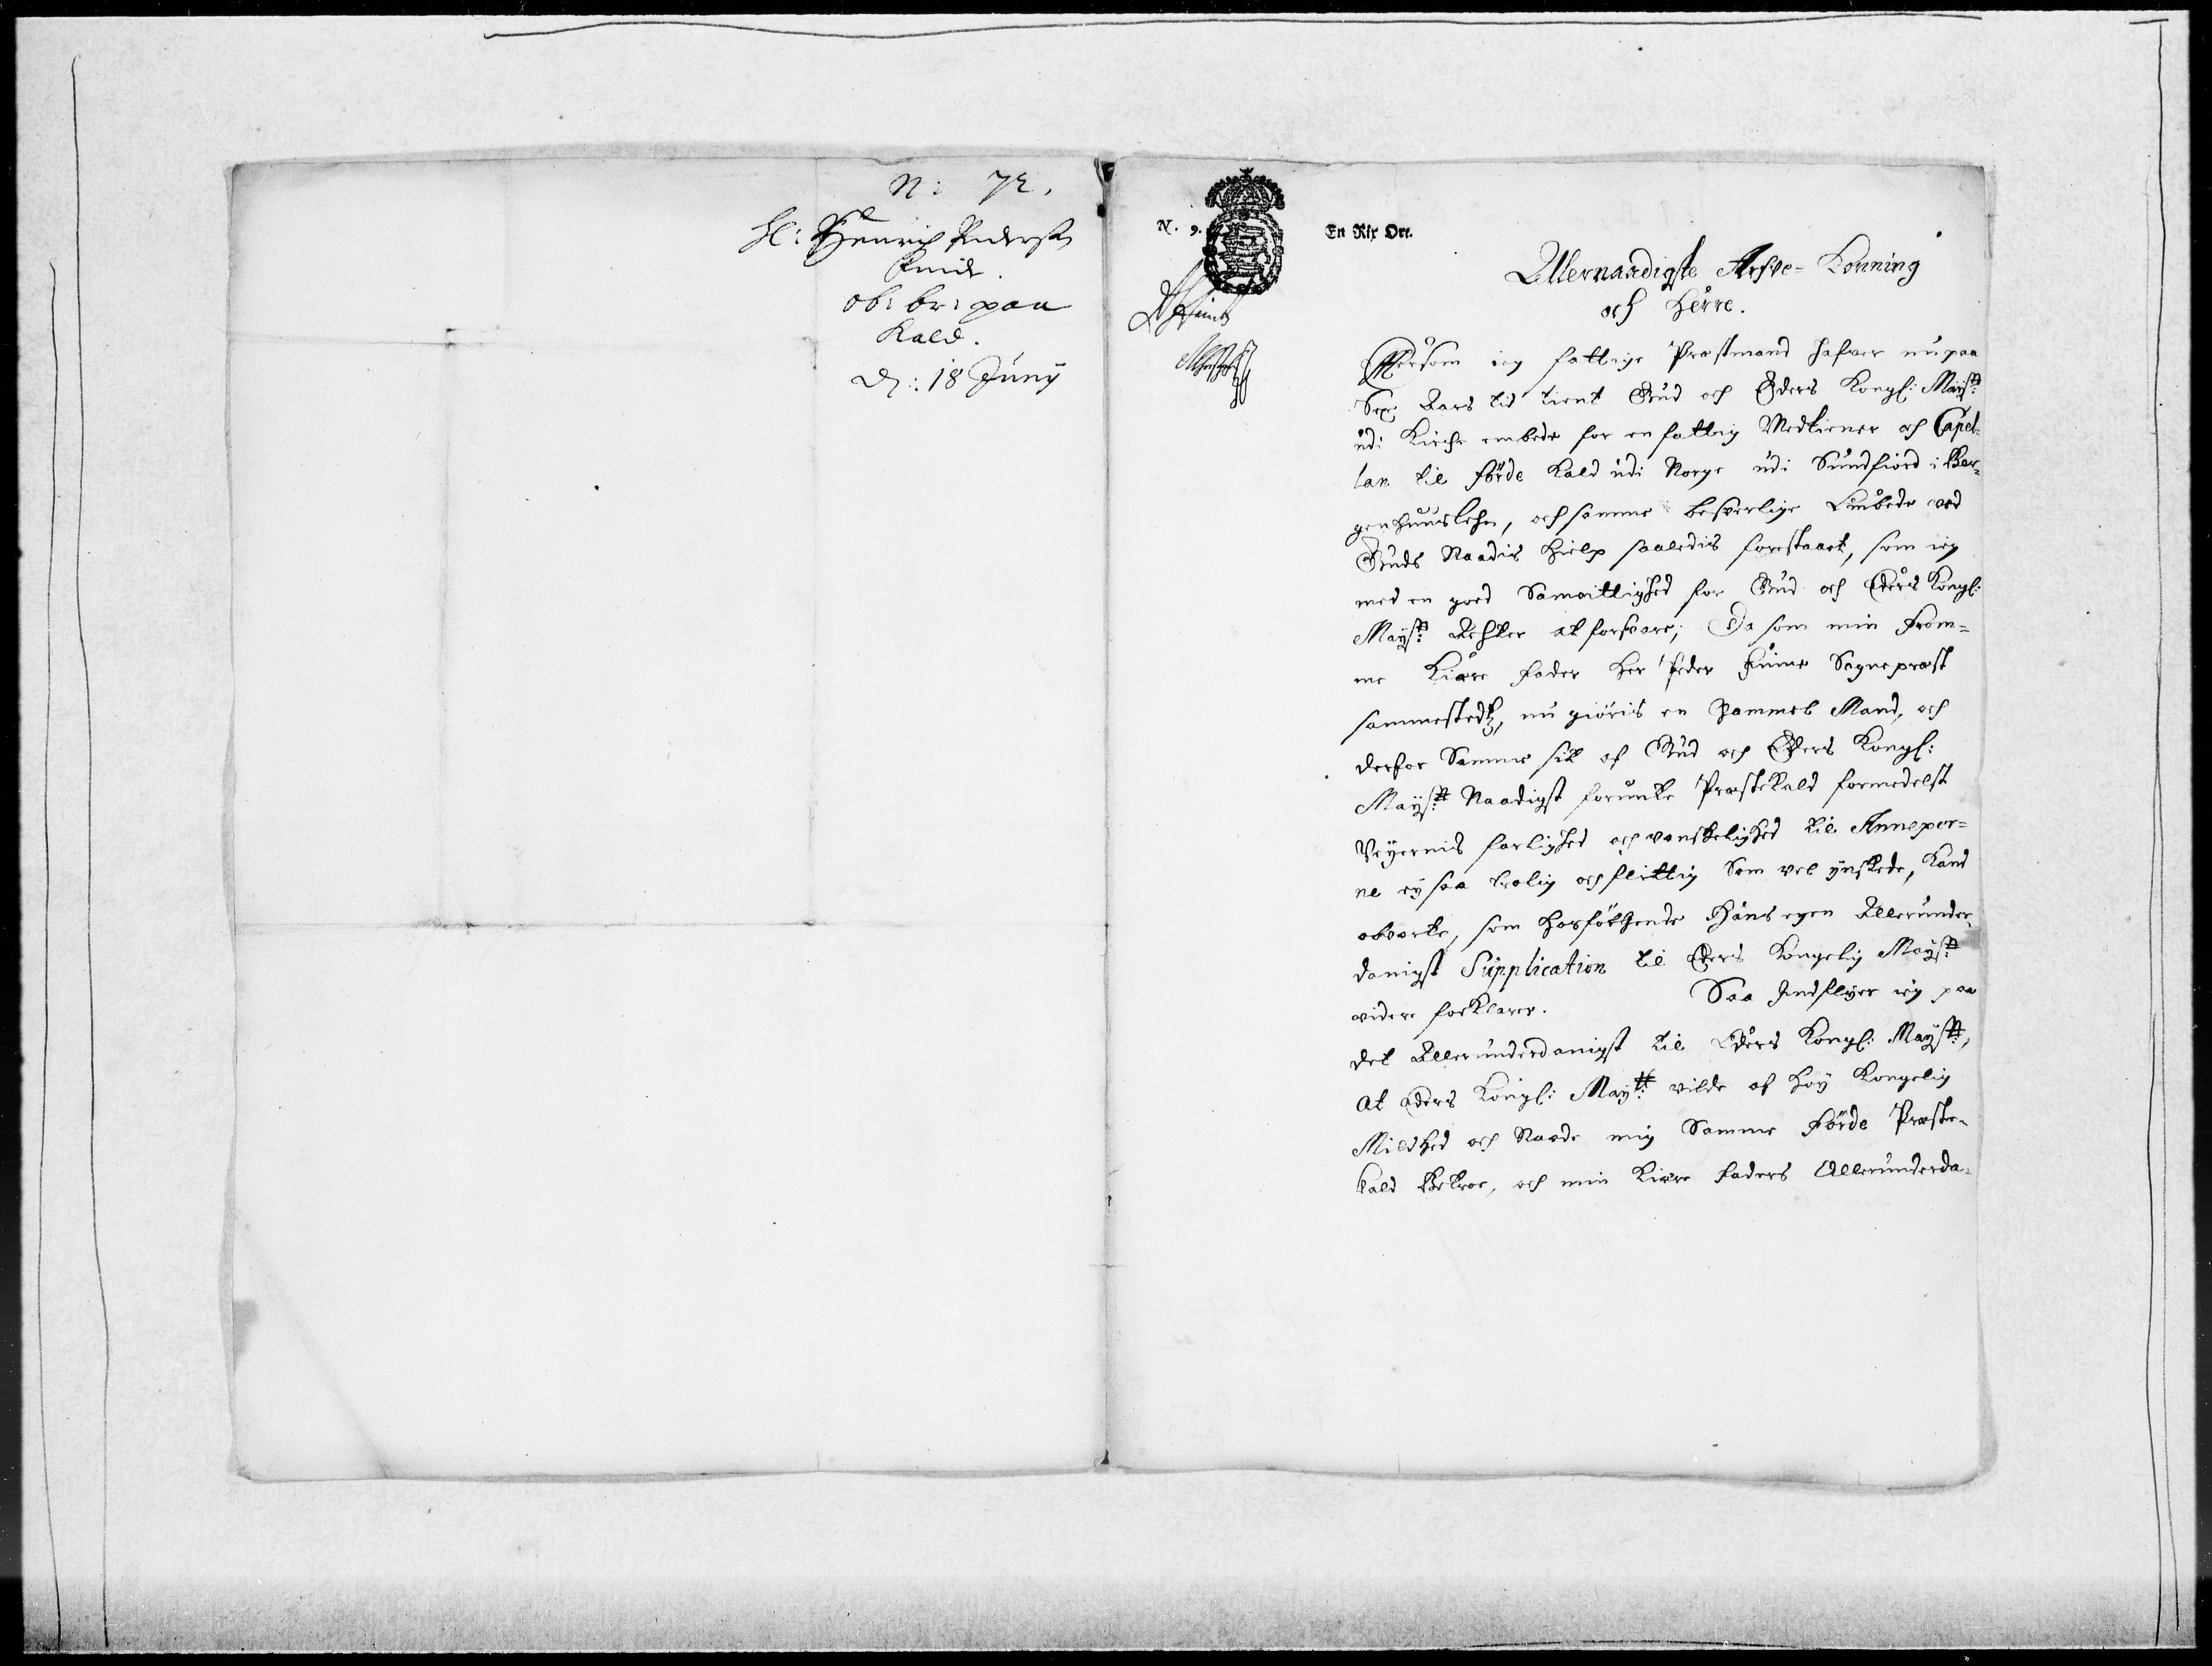 N: 72.
Hr: Henrich Pedersen
Finde.
ob: br: paa
Kald.
D: 18 Junÿ
N. 9.
En Rix Ort.
Allernaadigste Arfve=Konning
och Herre.
Effersom ieg fattige Præstmand hafver nu paa
Sex Aars tid tient Gud och Eders Kongl: Maÿstt:
udi Kirche embede for en fattig Medtiener och Capel-
lan til Förde Kald udi Norge udi Sundfiord i Ber-
genhuuslehn, och samme besverlige Embede ved
Guds Naadis hielp saaledis forestaaet, som ieg
med en goed Samvittighed for Gud och Eders Kongl:
Maÿstt: Achter at forsvare; Da som min From=
me kiære fader Her Peder Finde Sognepræst
sammestedtz, nu giöris en Gammel Mand, och
derfor Samme sit af Gud och Eders Kongl:
Maÿstt: Naadigst forunte Præstekald formedelst
Veÿernis farlighed och vanskelighed til Annexer=
ne eÿ saa trolig och flittig Som vel ÿnskede, Kand
obvarte, som hosfölgende Hans egen Allerunder-
danigst Supplication til Eders Kongelig Maÿstt
videre forklarer. Saa Indflÿer ieg paa
det Allerunderdanigst til Eders Kongl: Maÿstt:,
At Eders Kongl: Maÿtt: vilde af höÿ Kongelig
Mildhed och Naade mig Samme Förde Præste-
kald Betroe, och min kiære faders Allerunderda-